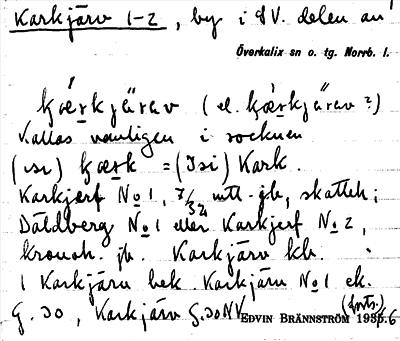 Karkjärv 1-2, by i SV. delen av
Överkalix sn o. tg. Norrb. l.
kǽrkjärav (el. kǽrkjärav?)
Kallas vanligen i socknen
(isi) kærk = (Isi) Kark.
Karkjerf No 1, 7/32 mtl jb, skatteh;
Dåldberg No 1 eller Karkjerf No 2,
kronoh. jb. Karkjärv kb.
1 Karkjärv bek. Karkjärv No 1 ek.
G. 30, Karkjärv G. 30 NV (forts.)
EDVIN BRÄNNSTRÖM 1936